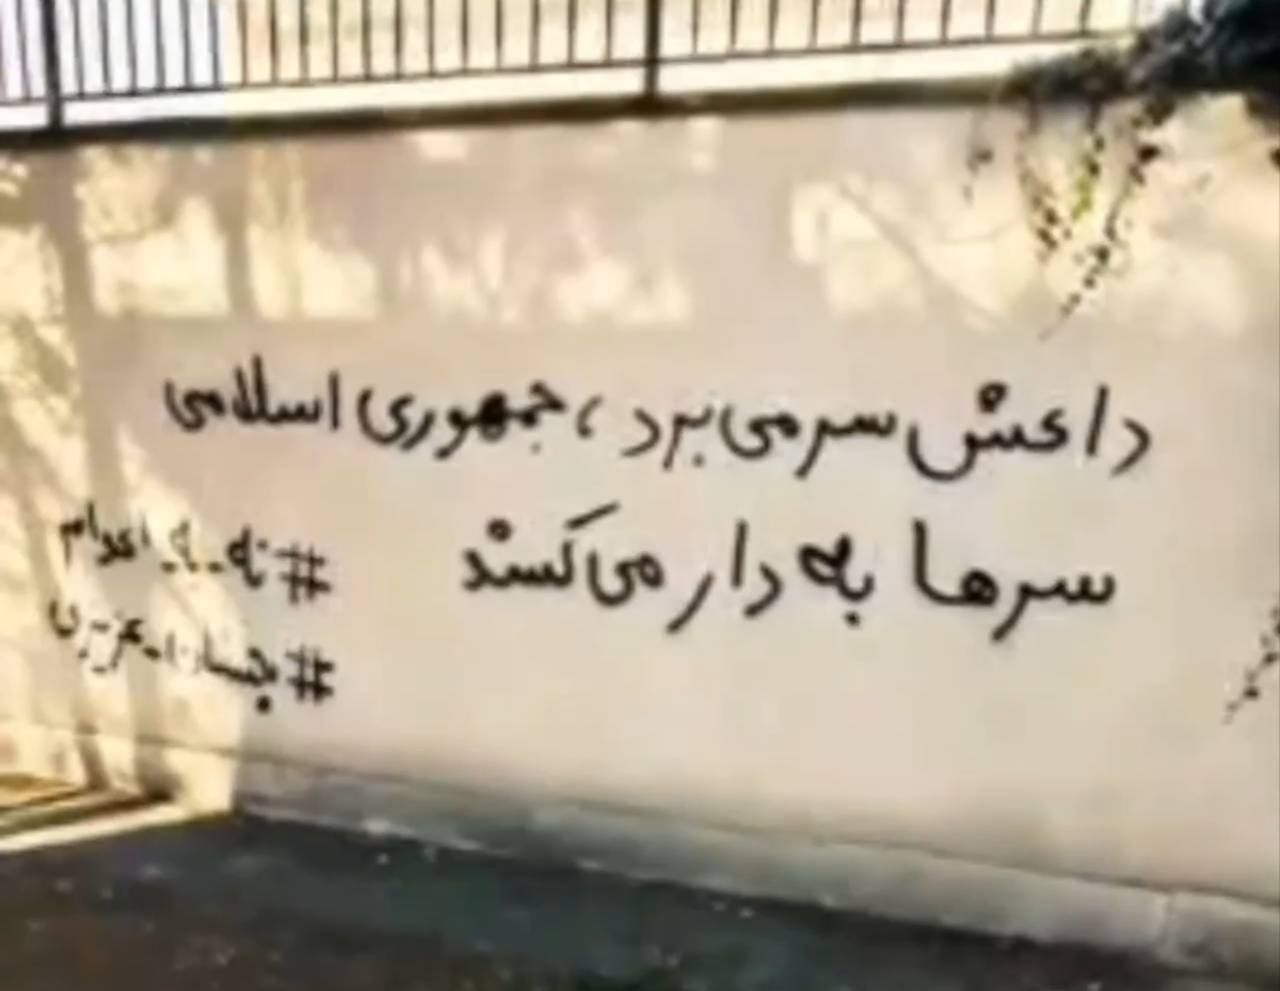 داعش سر می برد، جمهوری اسلامی
سرها به دار می کشد
#نه_به_اعدام
#پخشان_عزیزی